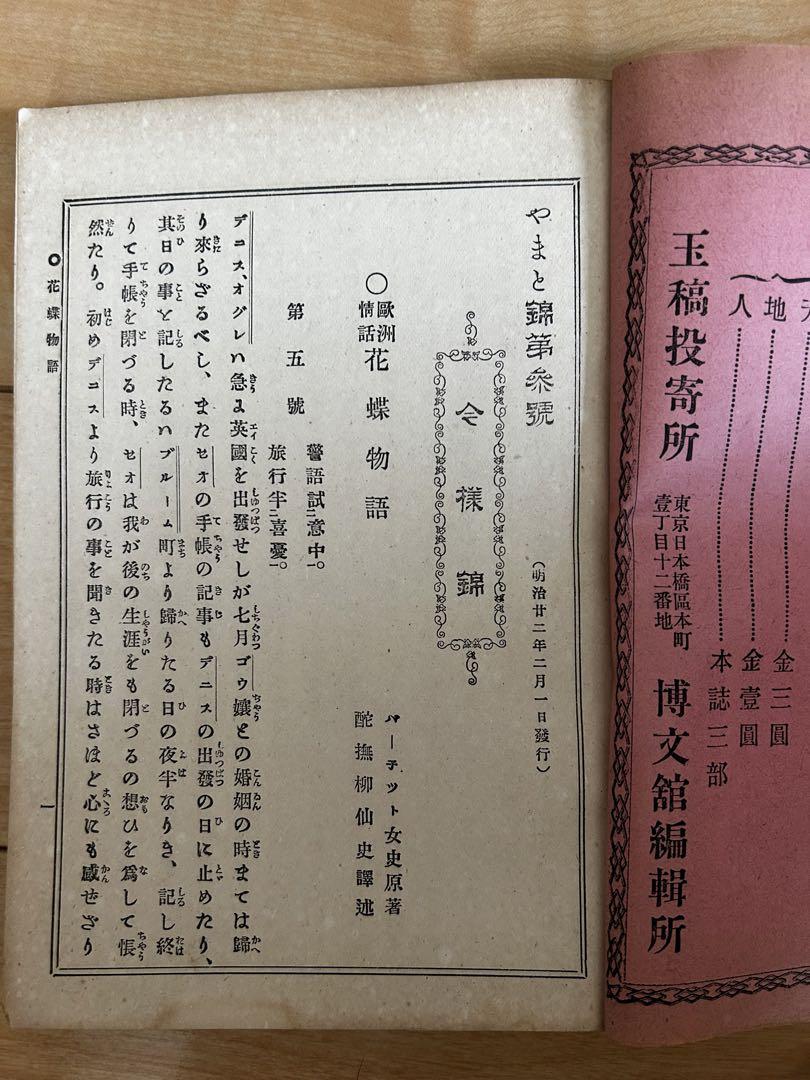 天
地………………金三圓
人………………金壹圓
本誌三部
玉稿投寄所 東京日本橋區本町壹丁目十二番地 博文舘編輯所
やまと錦第叅號 (明治廿二年二月一日發行)
今樣錦
○歐洲情話 花蝶物語
バーチット女史原著
酡撫柳仙史譯述
第五號
警語試ニ意中一。
旅行半ニ喜憂一。
デニス、オグレハ急に英國を出發せしが七月ゴウ孃との婚姻の時までは歸
り來らざるべし、またセオの手帳の記事もデニスの出發の日に止めたり、
其日の事を記したるハブルーム町より歸りたる日の夜半なりき、記し終
りて手帳を閉づる時、セオは我が後の生涯をも閉づるの想ひを爲して悵
然たり。初めデニスより旅行の事を聞きたる時はさほど心にも感せざり
○花蝶物語
一